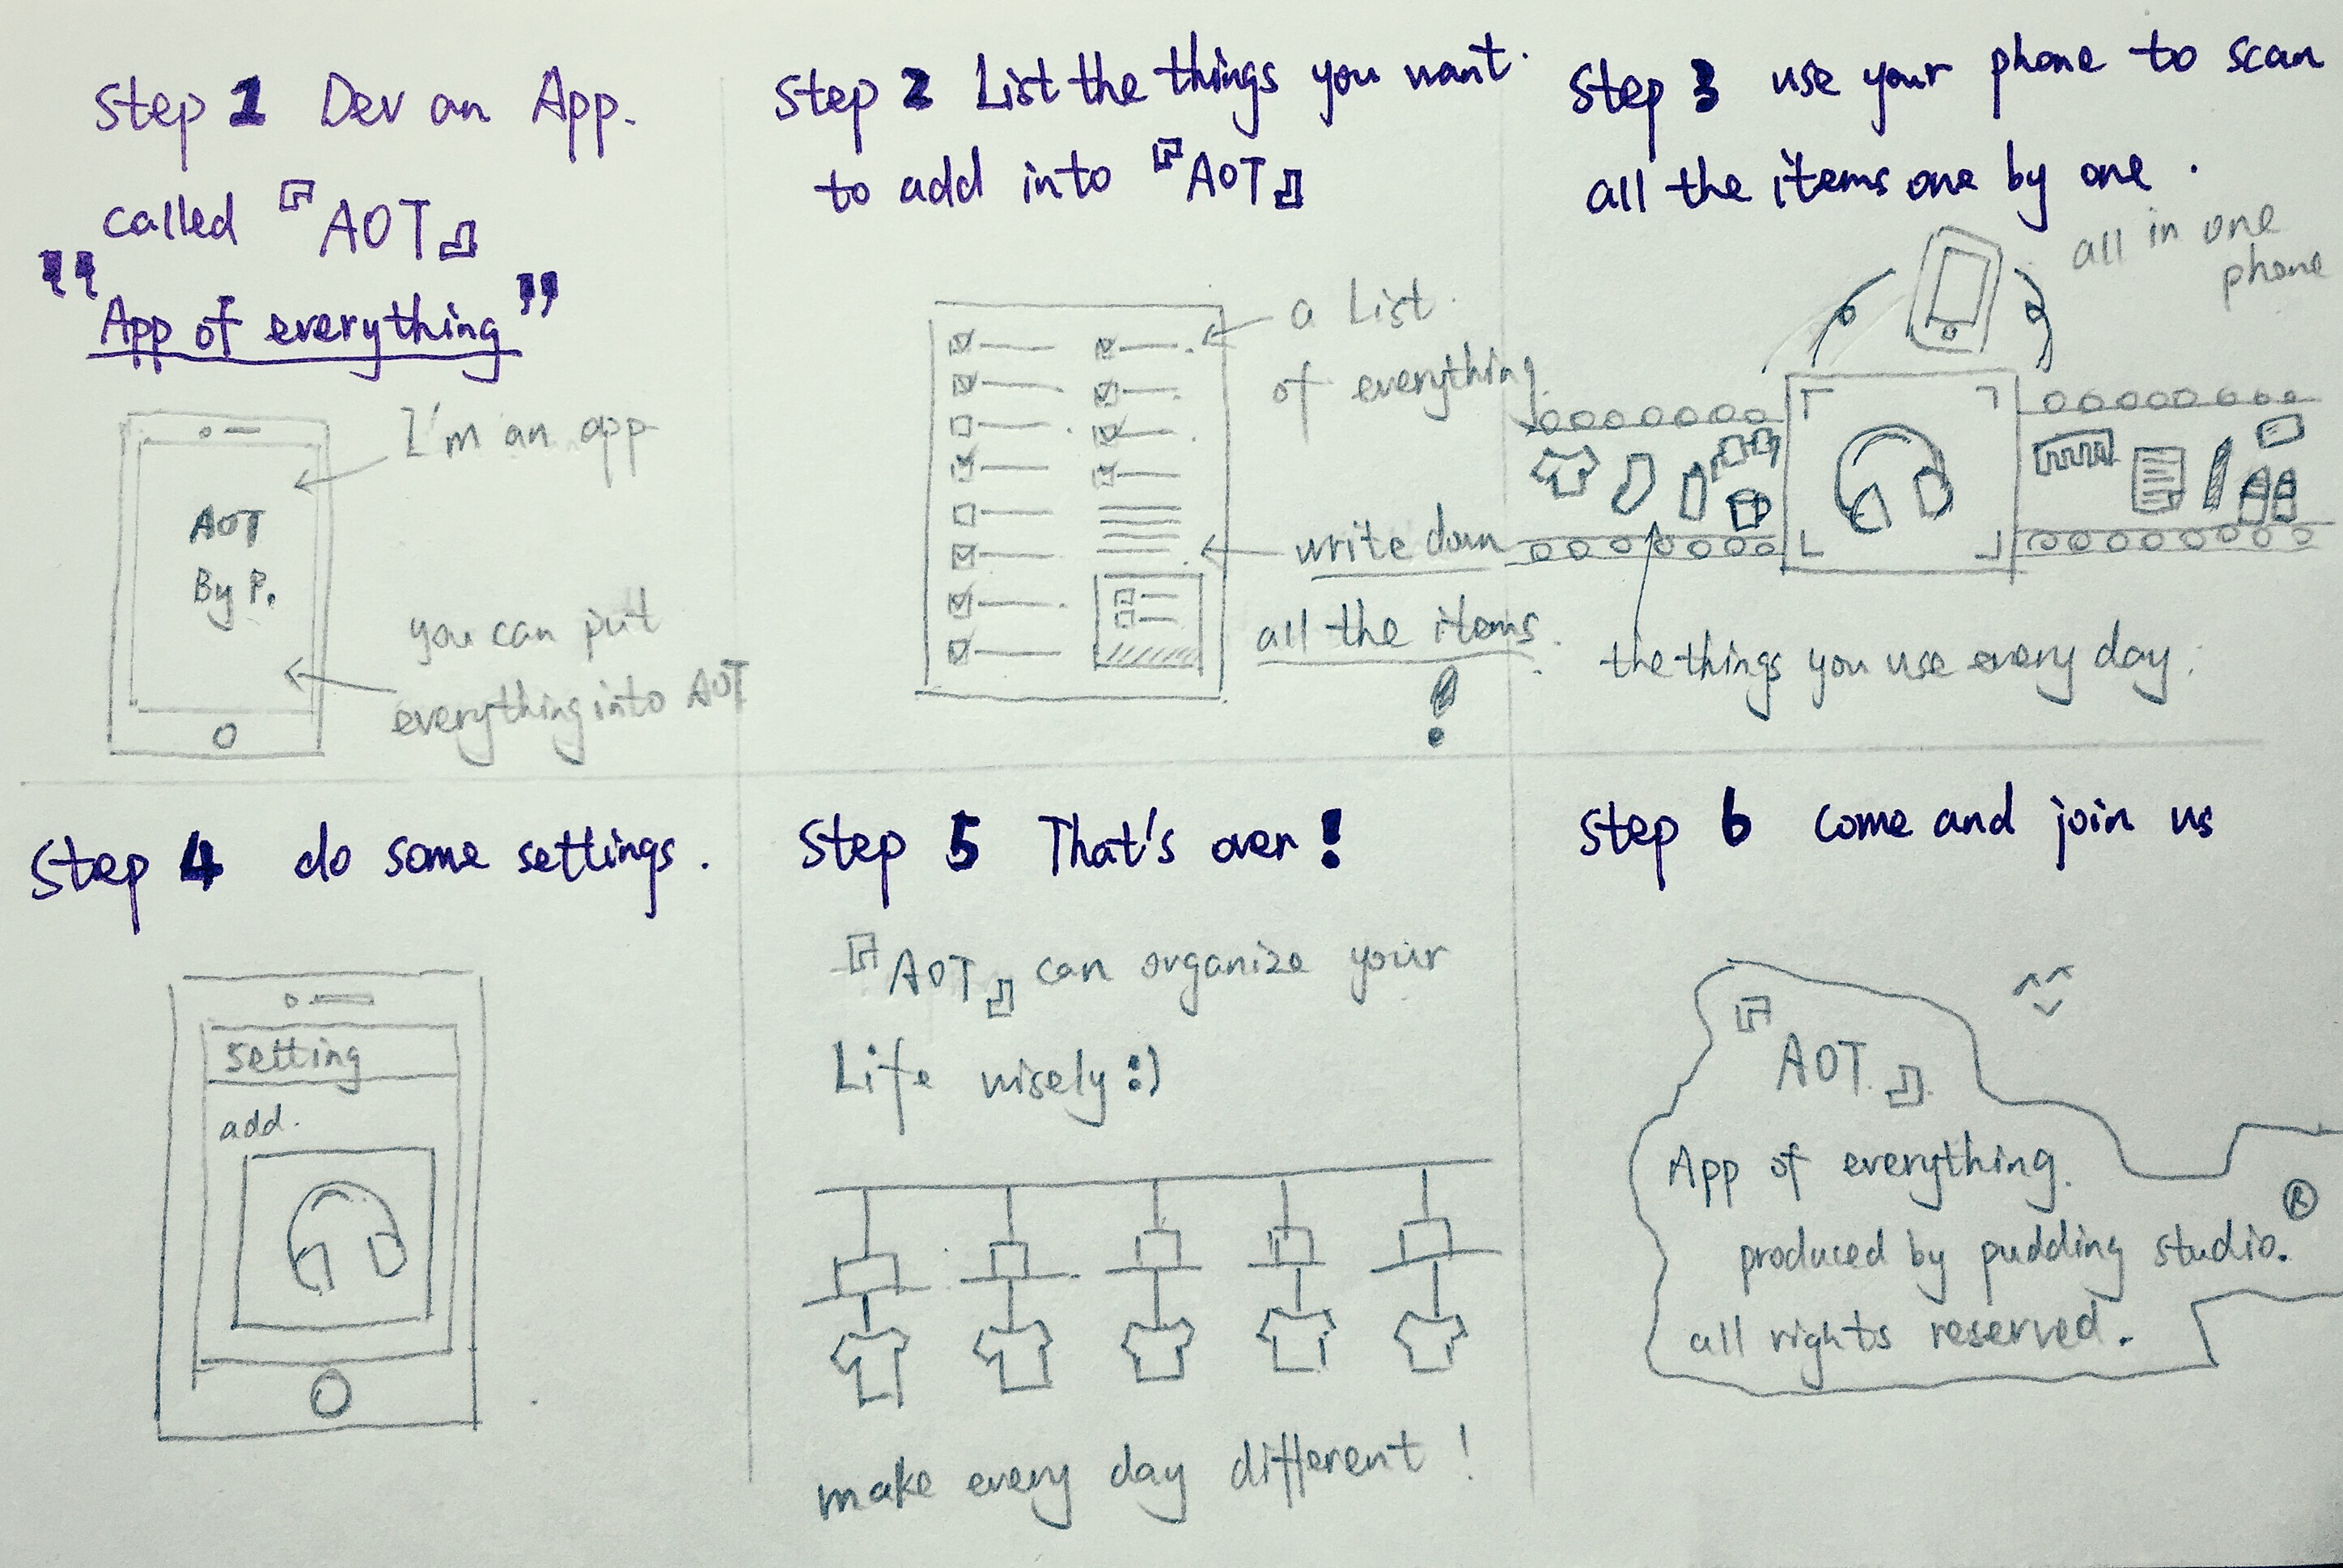 Step 1 Dev an App.
called『AOT』
"App of everything"
I'm an app
AOT
By P.
you can put
everything into AOT
Step 2 List the things you want
to add into『AOT』
a List
of everything
write down
all the items.
!
Step 3 use your phone to scan
all the items one by one.
all in one
phone
the things you use every day.
Step 4 do some settings.
setting
add.
Step 5 That's over!
『AOT』can organize your
Life wisely :)
make every day different!
Step 6 come and join us
『AOT』
^^
App of everything.
produced by pudding studio.®
all rights reserved.